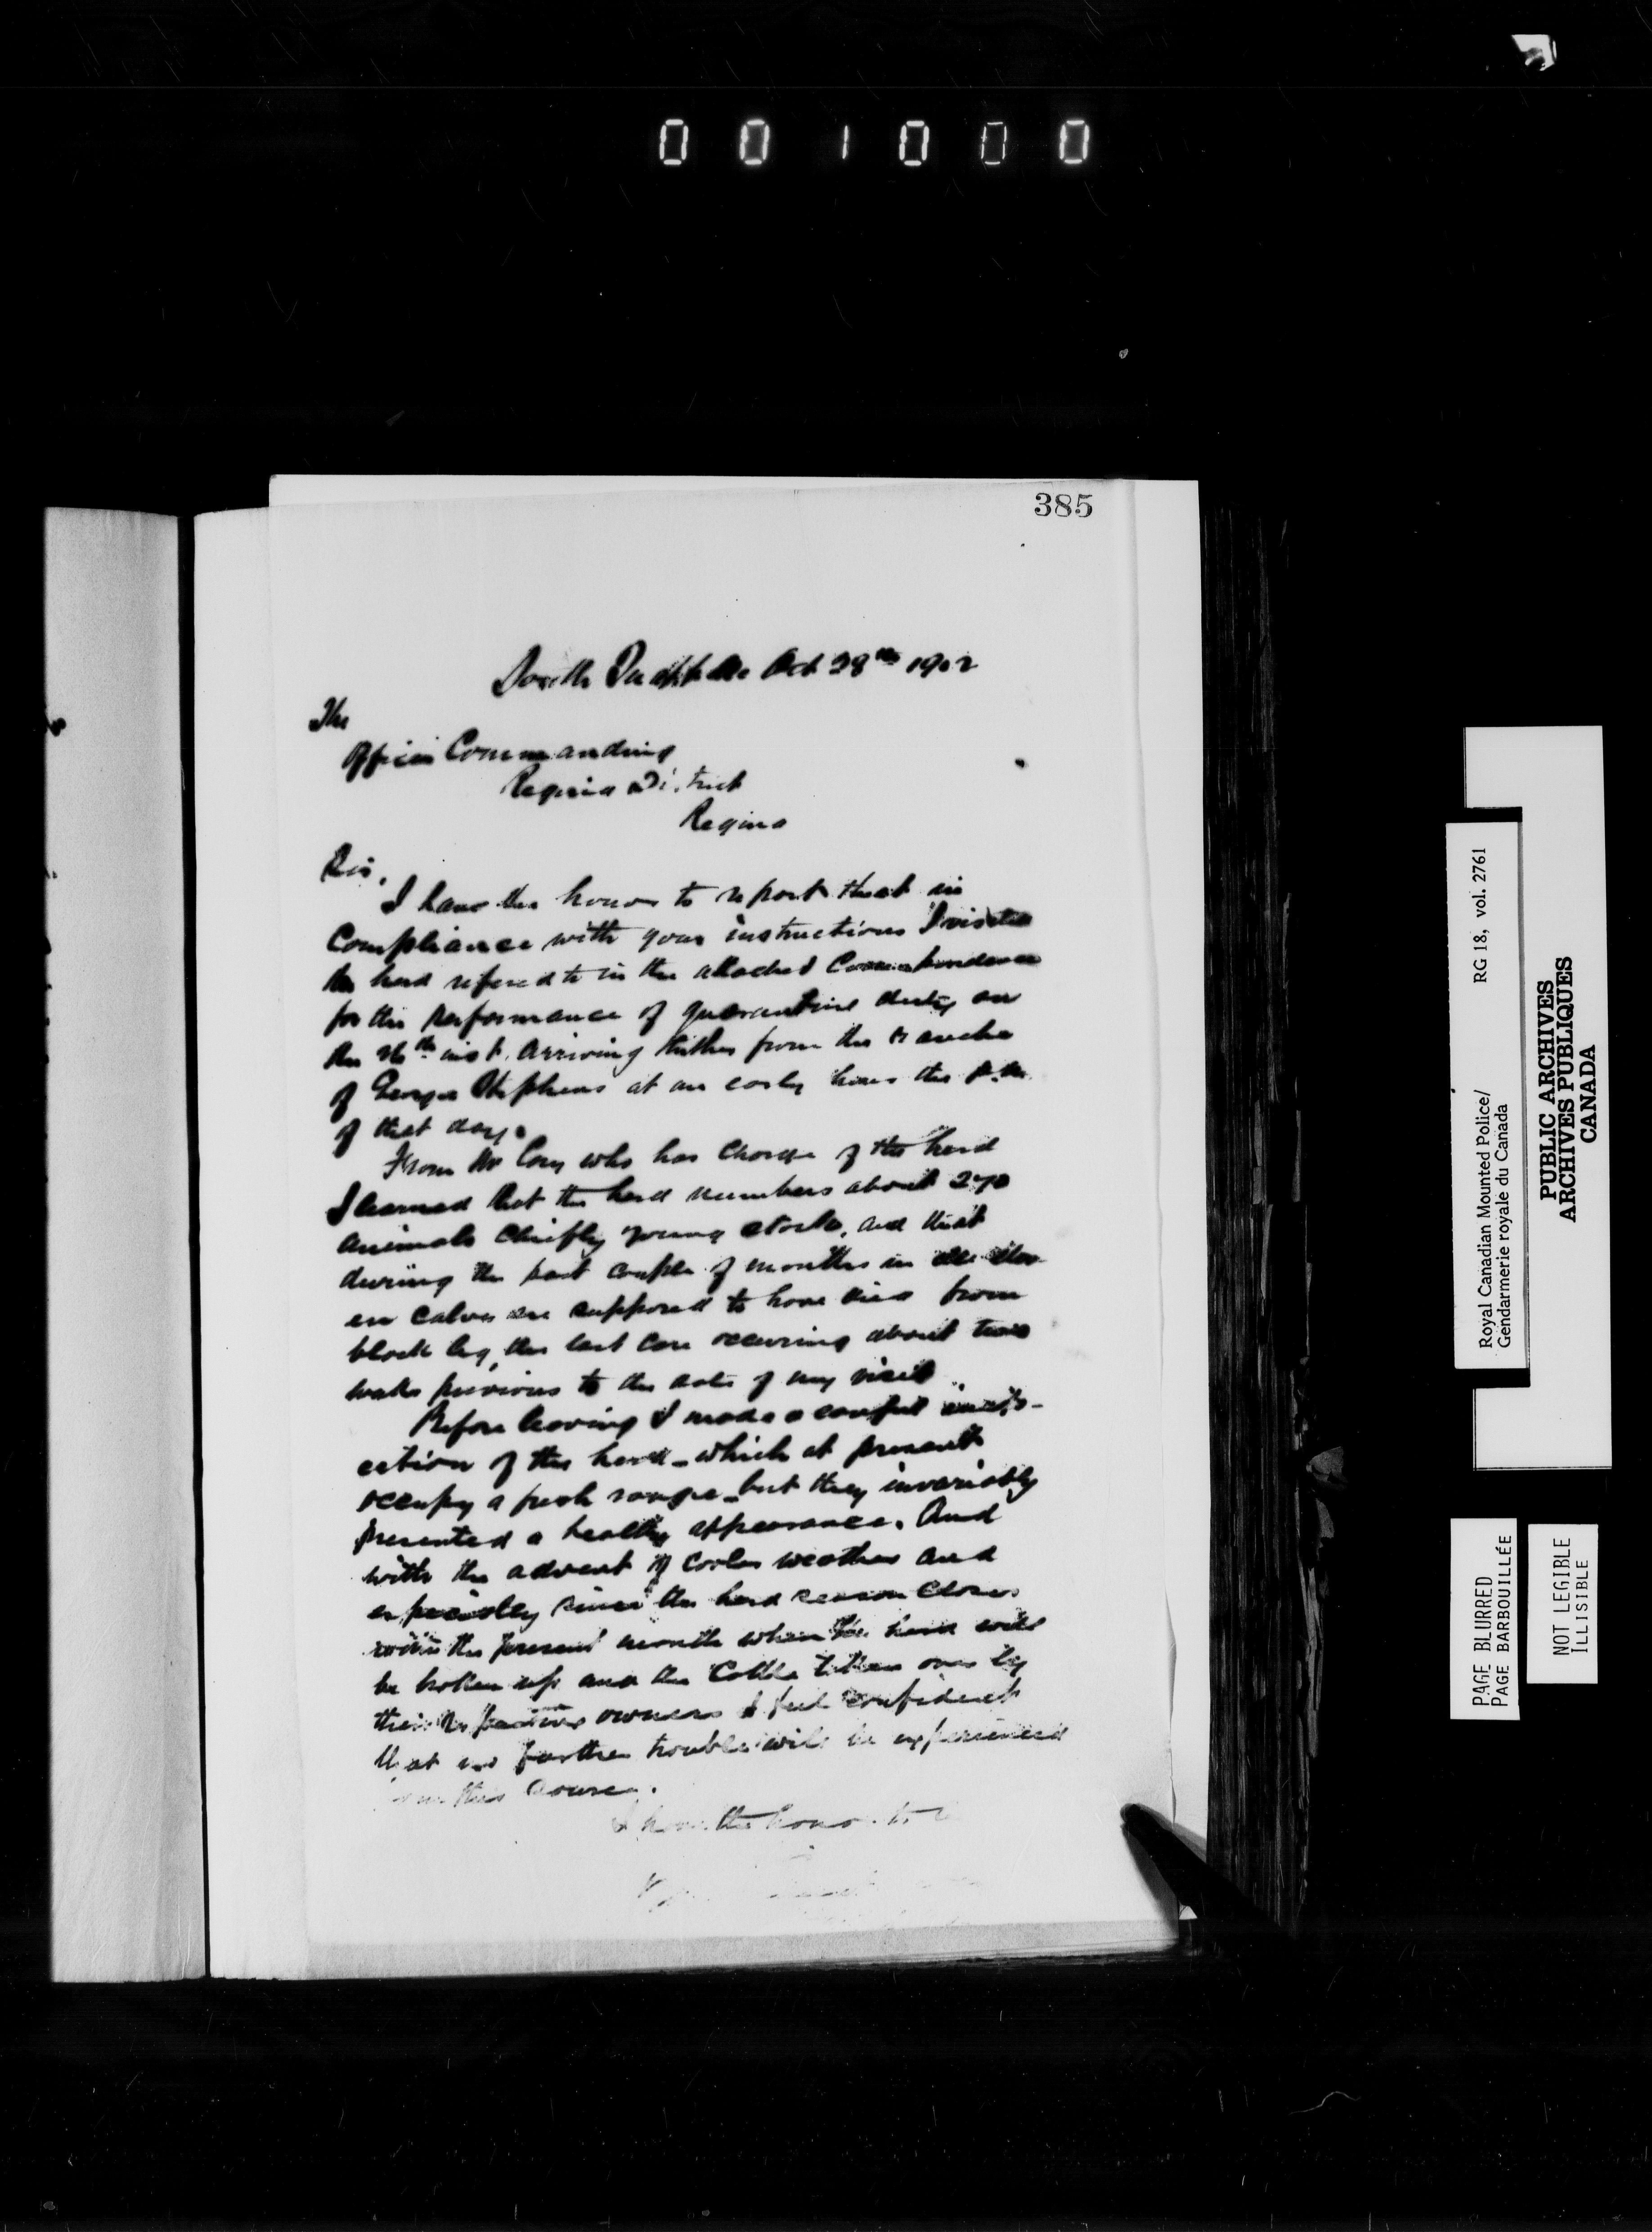 001000
385
South Qu'Appelle Oct 28th 1902
The
Officer Commanding
Regina District
Regina
Sir,
I have the honor to report that in
compliance with your instructions I visited
the herd refered to in the attached Correspondence
for the performance of quarantine duty on
the 26th inst. arriving thither from the ranche
of George Stephens at an early hour the p.m.
of that day.
From Mr who has charge of the herd
I learned that the herd numbers about 270
animals chiefly young stock, and that
during the past couple of months in all
calves are supposed to have died from
black leg, the last case occuring about two
weeks previous to the date of my visit.
Before leaving I made a careful
of the herd - which at present
occupy a fresh range - but they invariably
presented a healthy appearance. And
with the advent of cooler weather and
especially since the herd season closes
the present month when the herd will
be broken up and the Cattle taken over by
their respective owners I feel confident
that no further trouble will be experienced
this source.
I have the honor to
Royal Canadian Mounted Police/ RG 18, vol. 2761
Gendarmerie royale du Canada
PUBLIC ARCHIVES
ARCHIVES PUBLIQUES
CANADA
PAGE BLURRED
PAGE BARBOUILLÉE
NOT LEGIBLE
ILLISIBLE